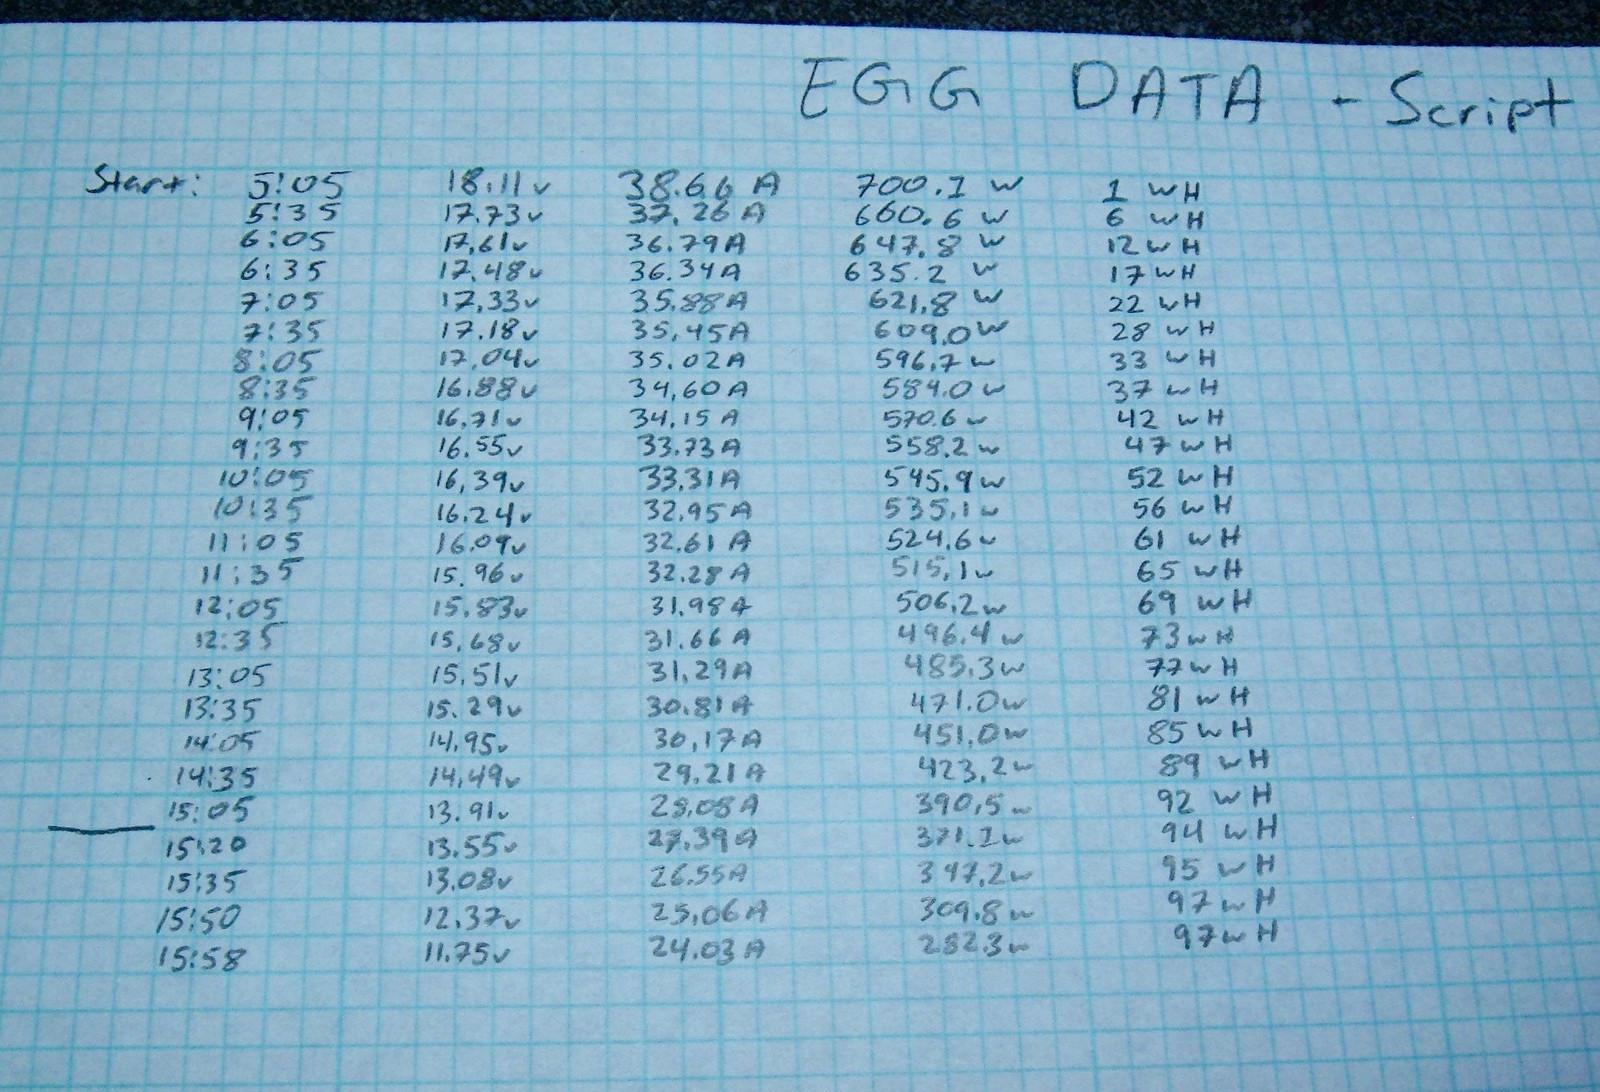 EGG DATA - Script
Start: 5:05 18.11v 38.66 A 700.1 W 1 WH
5:35 17.73v 37.26 A 660.6 W 6 WH
6:05 17.61v 36.79A 647.8 W 12 WH
6:35 17.48v 36.34A 635.2 W 17 WH
7:05 17.33v 35.88A 621.8 W 22 WH
7:35 17.18v 35.45A 609.0W 28 WH
8:05 17.04v 35.02A 596.7w 33 WH
8:35 16.88v 34.60A 584.0w 37 WH
9:05 16.71v 34.15 A 570.6w 42 WH
9:35 16.55v 33.73A 558.2w 47 WH
10:05 16.39v 33.31A 545.9w 52 WH
10:35 16.24v 32.95A 535.1w 56 WH
11:05 16.09v 32.61 A 524.6w 61 WH
11:35 15.96v 32.28A 515.1w 65 WH
12:05 15.83v 31.98A 506.2w 69 WH
12:35 15.68v 31.66A 496.4w 73WH
13:05 15.51v 31.29A 485.3w 77WH
13:35 15.29v 30.81A 471.0w 81 WH
14:05 14.95v 30.17A 451.0w 85WH
14:35 14.49v 29.21A 423.2w 89 WH
15:05 13.91v 28.08A 390.5w 92 WH
15:20 13.55v 27.39A 371.1w 94 WH
15:35 13.08v 26.55A 347.2w 95 WH
15:50 12.37v 25.06A 309.8w 97WH
15:58 11.75v 24.03A 282.3w 97WH